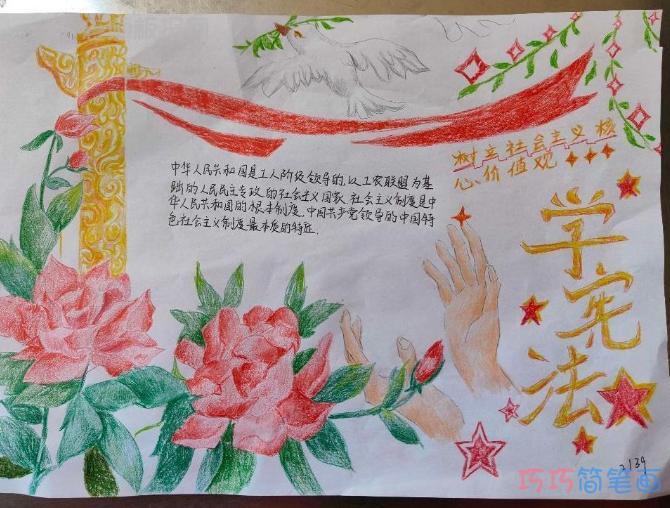 树立社会主义核
心价值观
学宪法
中华人民共和国是工人阶级领导的,以工农联盟为基
础的人民民主专政的社会主义国家.社会主义制度是中
华人民共和国的根本制度.中国共产党领导的中国特
色社会主义制度最本质的特征.
2139
巧巧简笔画